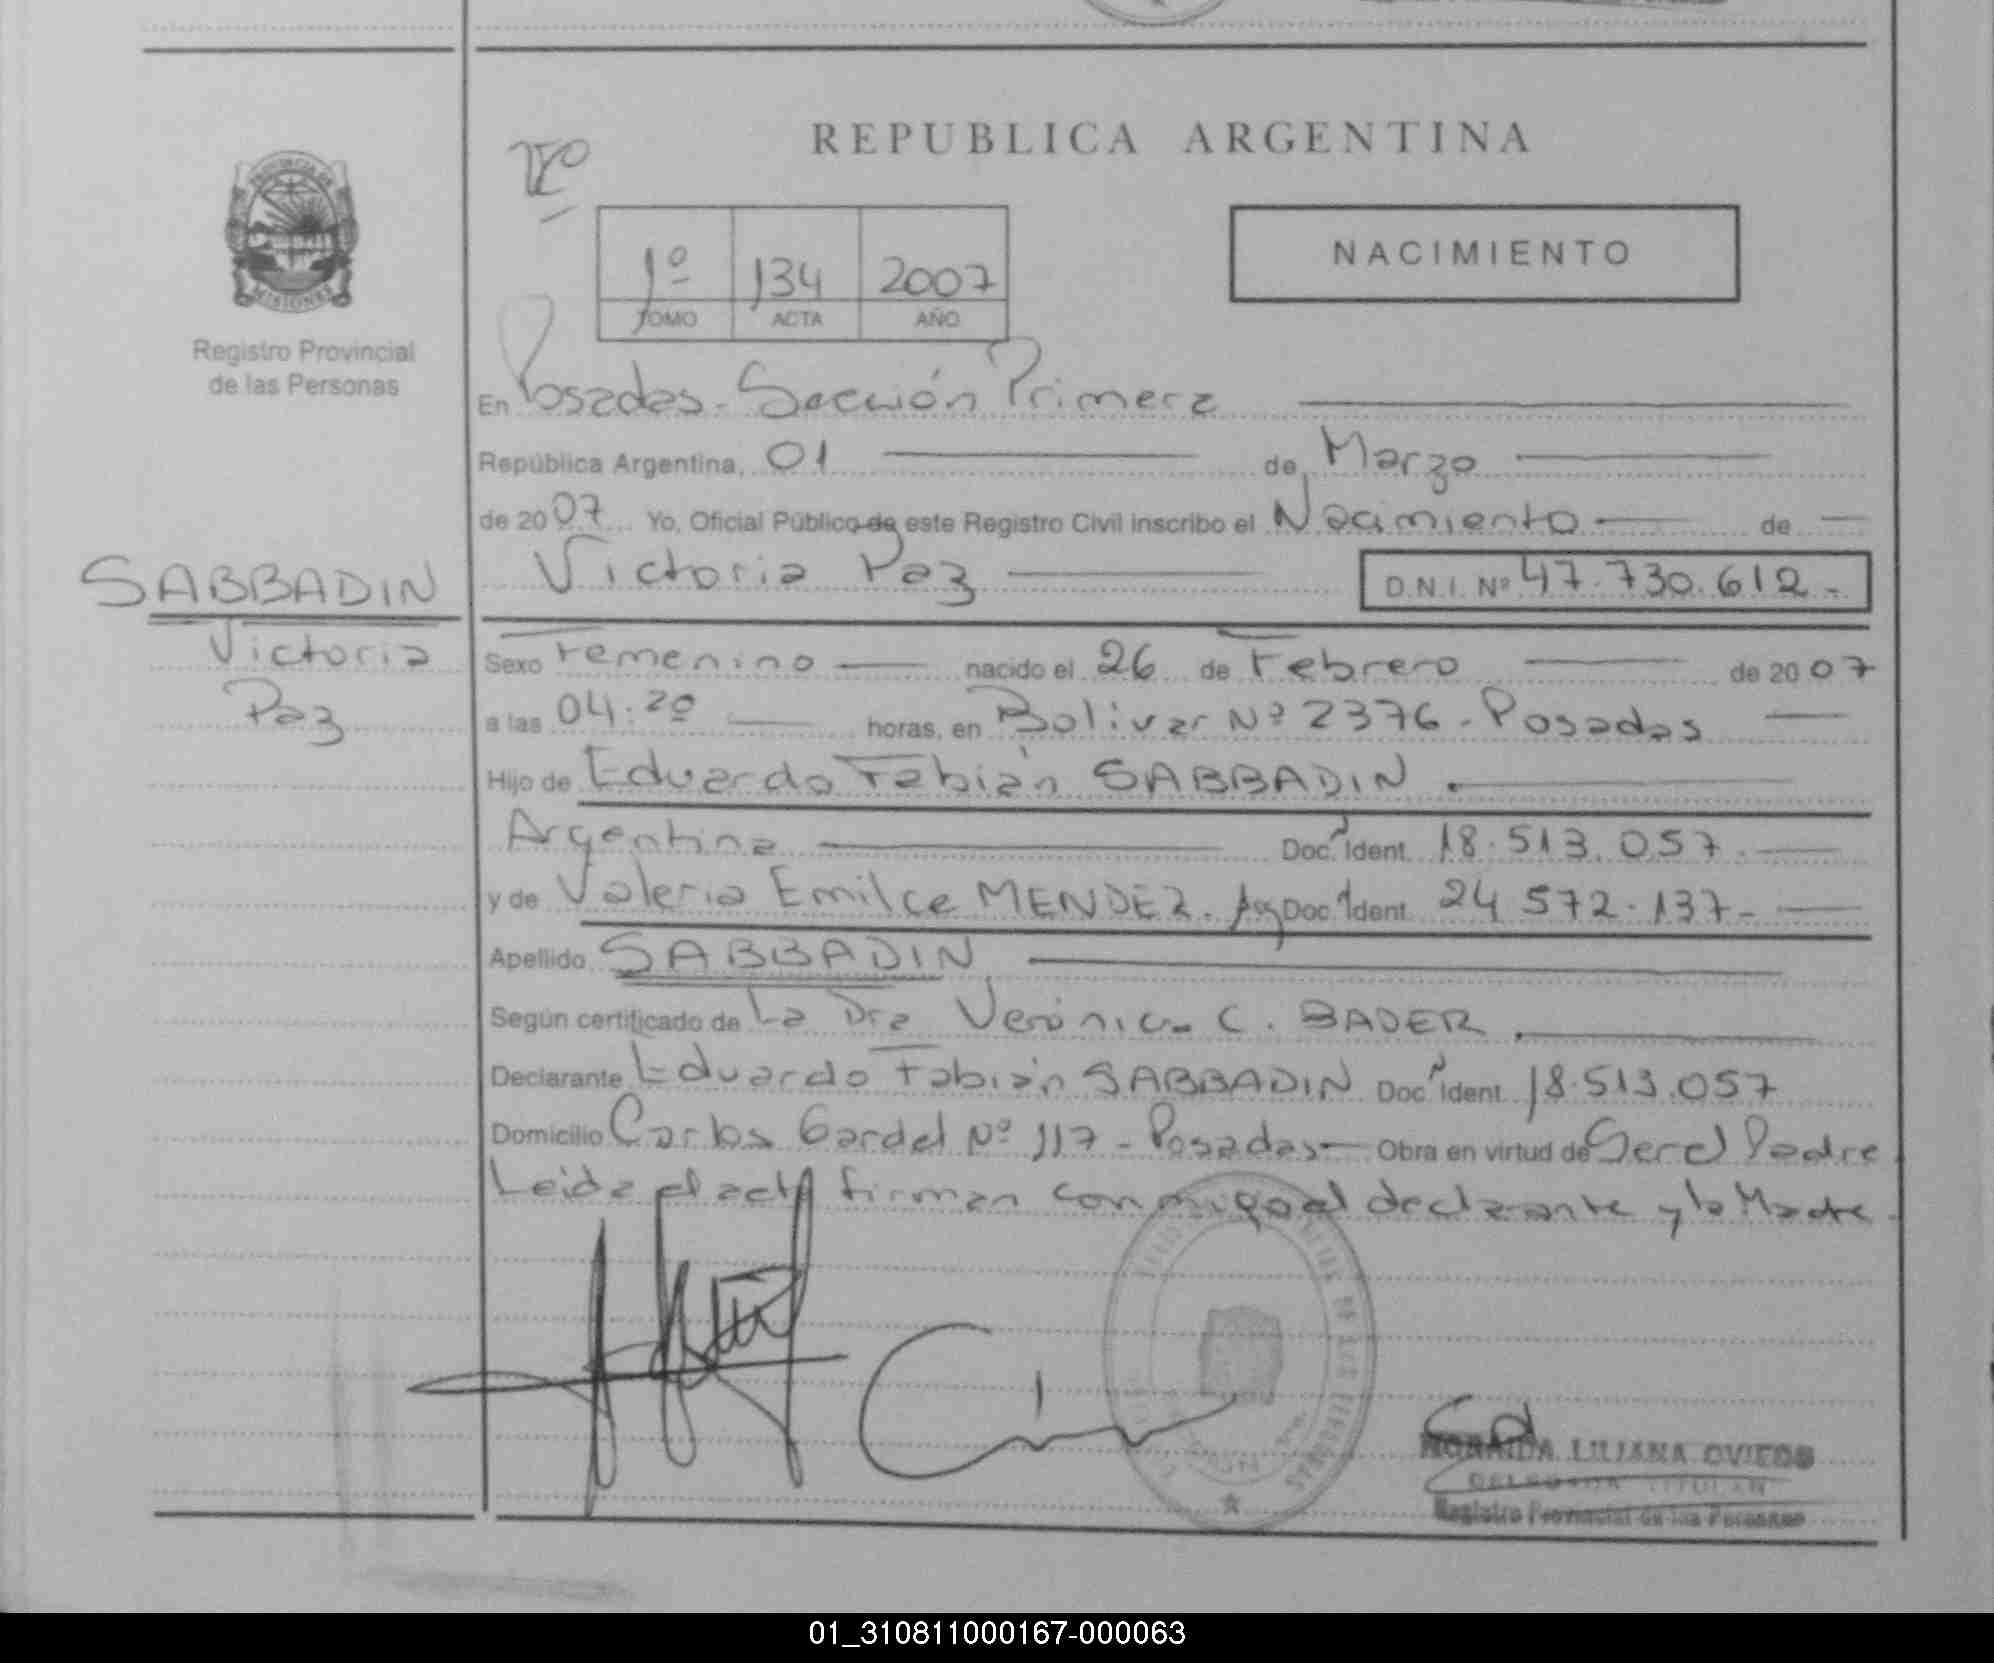 REPUBLICA ARGENTINA
PROVINCIA DE
MISIONES
Registro Provincial
de las Personas
1º 134 2007
TOMO ACTA AÑO
NACIMIENTO
En Posadas - Sección Primera
República Argentina, 01 de Marzo
de 2007 Yo, Oficial Público de este Registro Civil inscribo el Nacimiento de
Victoria Paz D.N.I. Nº 47.730.612.-
SABBADIN
Victoria
Paz
Sexo Femenino nacido el 26 de Febrero de 2007
a las 04:20 horas, en Bolivar Nº 2376 - Posadas
Hijo de Eduardo Fabián SABBADIN.
Argentina Doc. Ident. 18.513.057.
y de Valeria Emilce MENDEZ. Arg Doc. Ident. 24 572.137-
Apellido SABBADIN
Según certificado de La Dra Verónica C. BADER.
Declarante Eduardo Fabián SABBADIN Doc. Ident. 18.513.057
Domicilio Carlos Gardel Nº 117 - Posadas - Obra en virtud de Ser el Padre
Leida el acta firman conmigo el declarante y la Madre.
LILIANA OVIEDO
DELEGADA TITULAR
Registro Provincial de las Personas
01_310811000167-000063